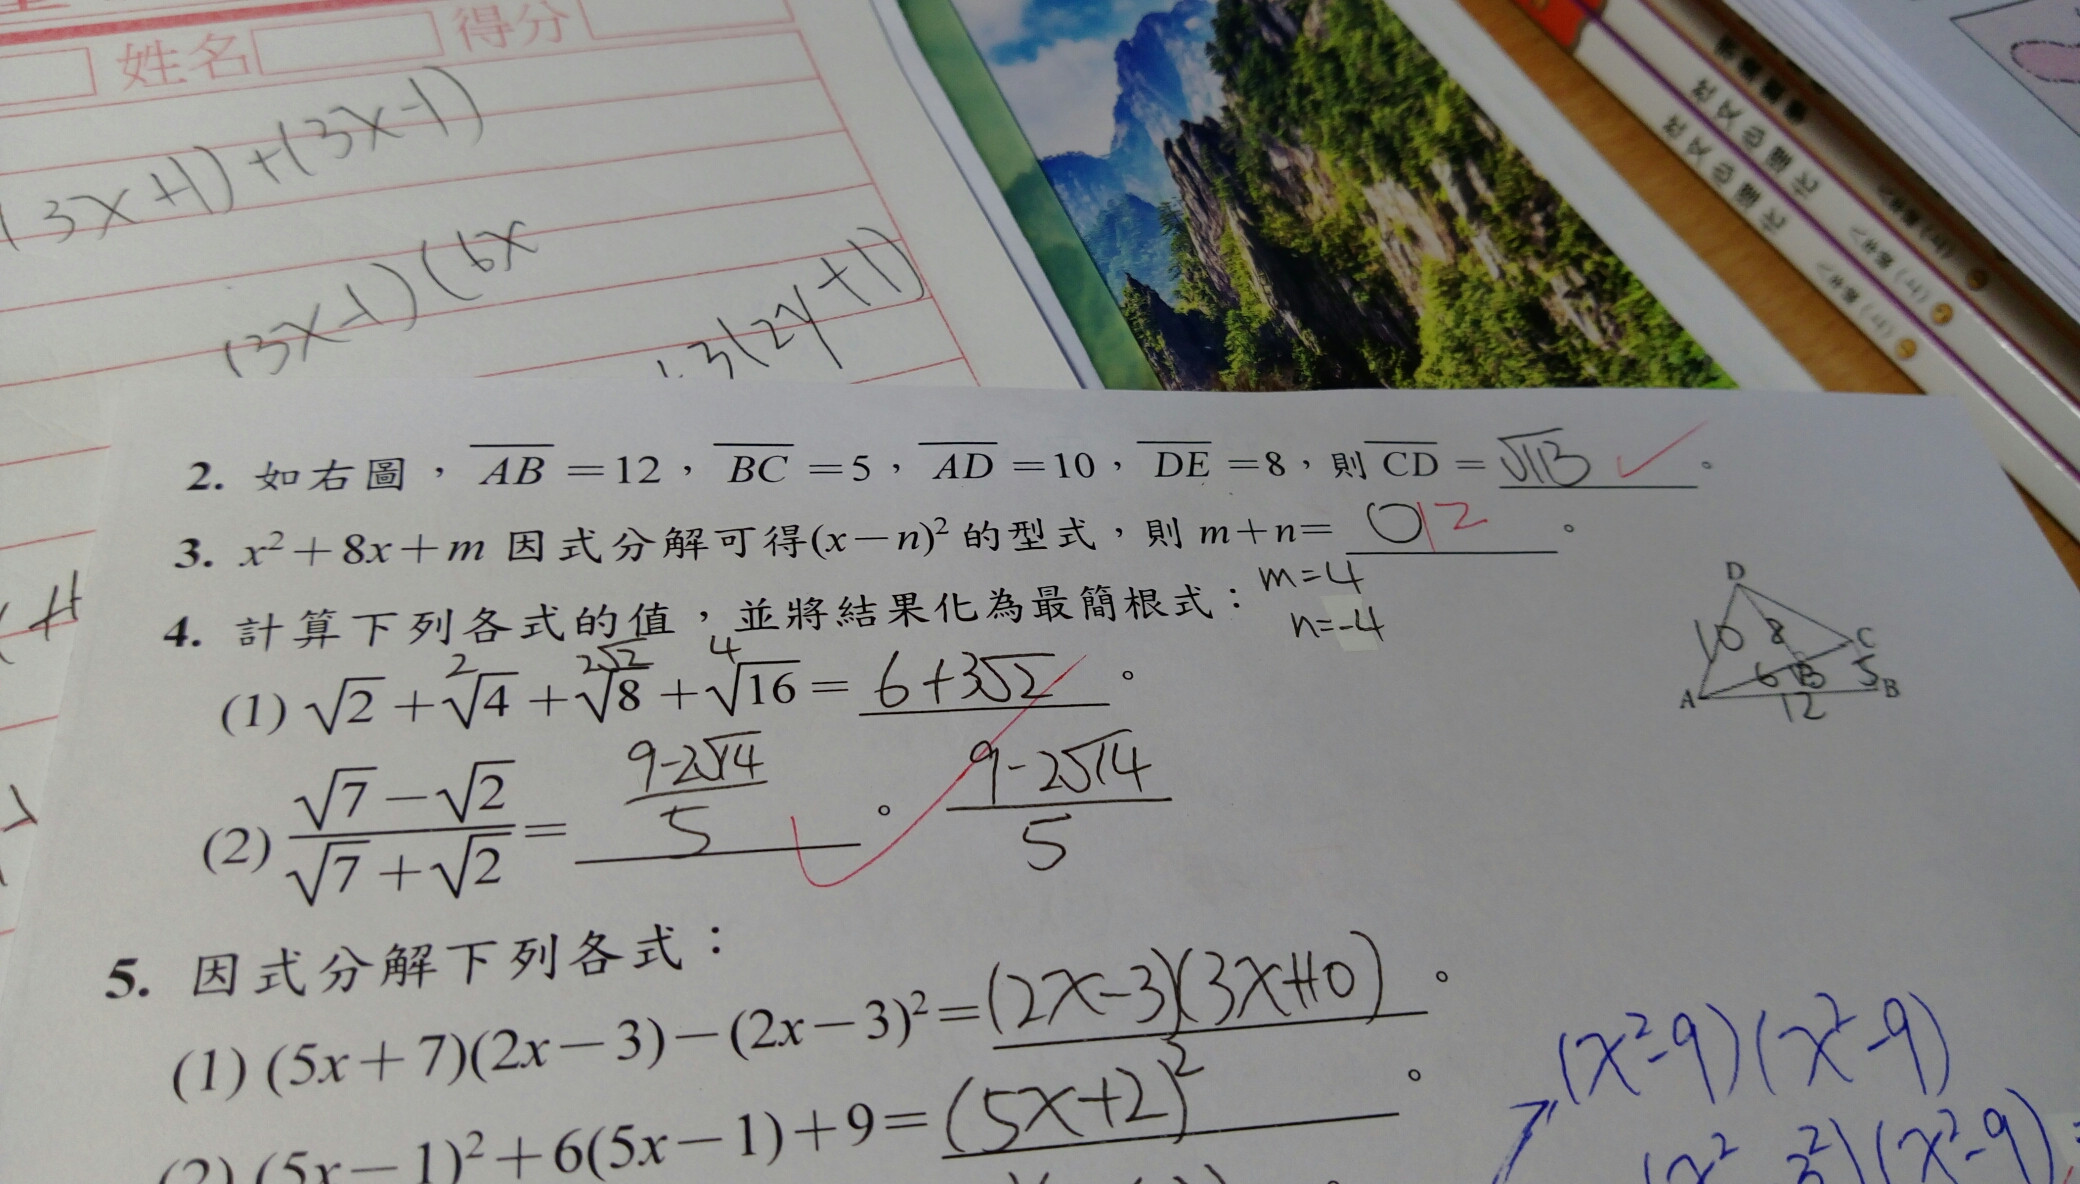 姓名 得分
(3x+1)+(3x-1)
(3x-1)(6x
3(2y+1)
2. 如右圖，AB=12，BC=5，AD=10，DE=8，則CD=√13。
3. x²+8x+m因式分解可得(x-n)²的型式，則m+n=0 12。
m=4
n=-4
4. 計算下列各式的值，並將結果化為最簡根式：
2 2√2 4
(1) √2+√4+√8+√16=6+3√2。
(2) (√7-√2)/(√7+√2)=(9-2√14)/5。 (9-2√14)/5
D
10 8 C
6 B 5
A 12 B
5. 因式分解下列各式：
(1) (5x+7)(2x-3)-(2x-3)²=(2x-3)(3x+10)。
(2) (5x-1)²+6(5x-1)+9=(5x+2)²。
(x²-9)(x²-9)
(x²-3²)(x²-9)